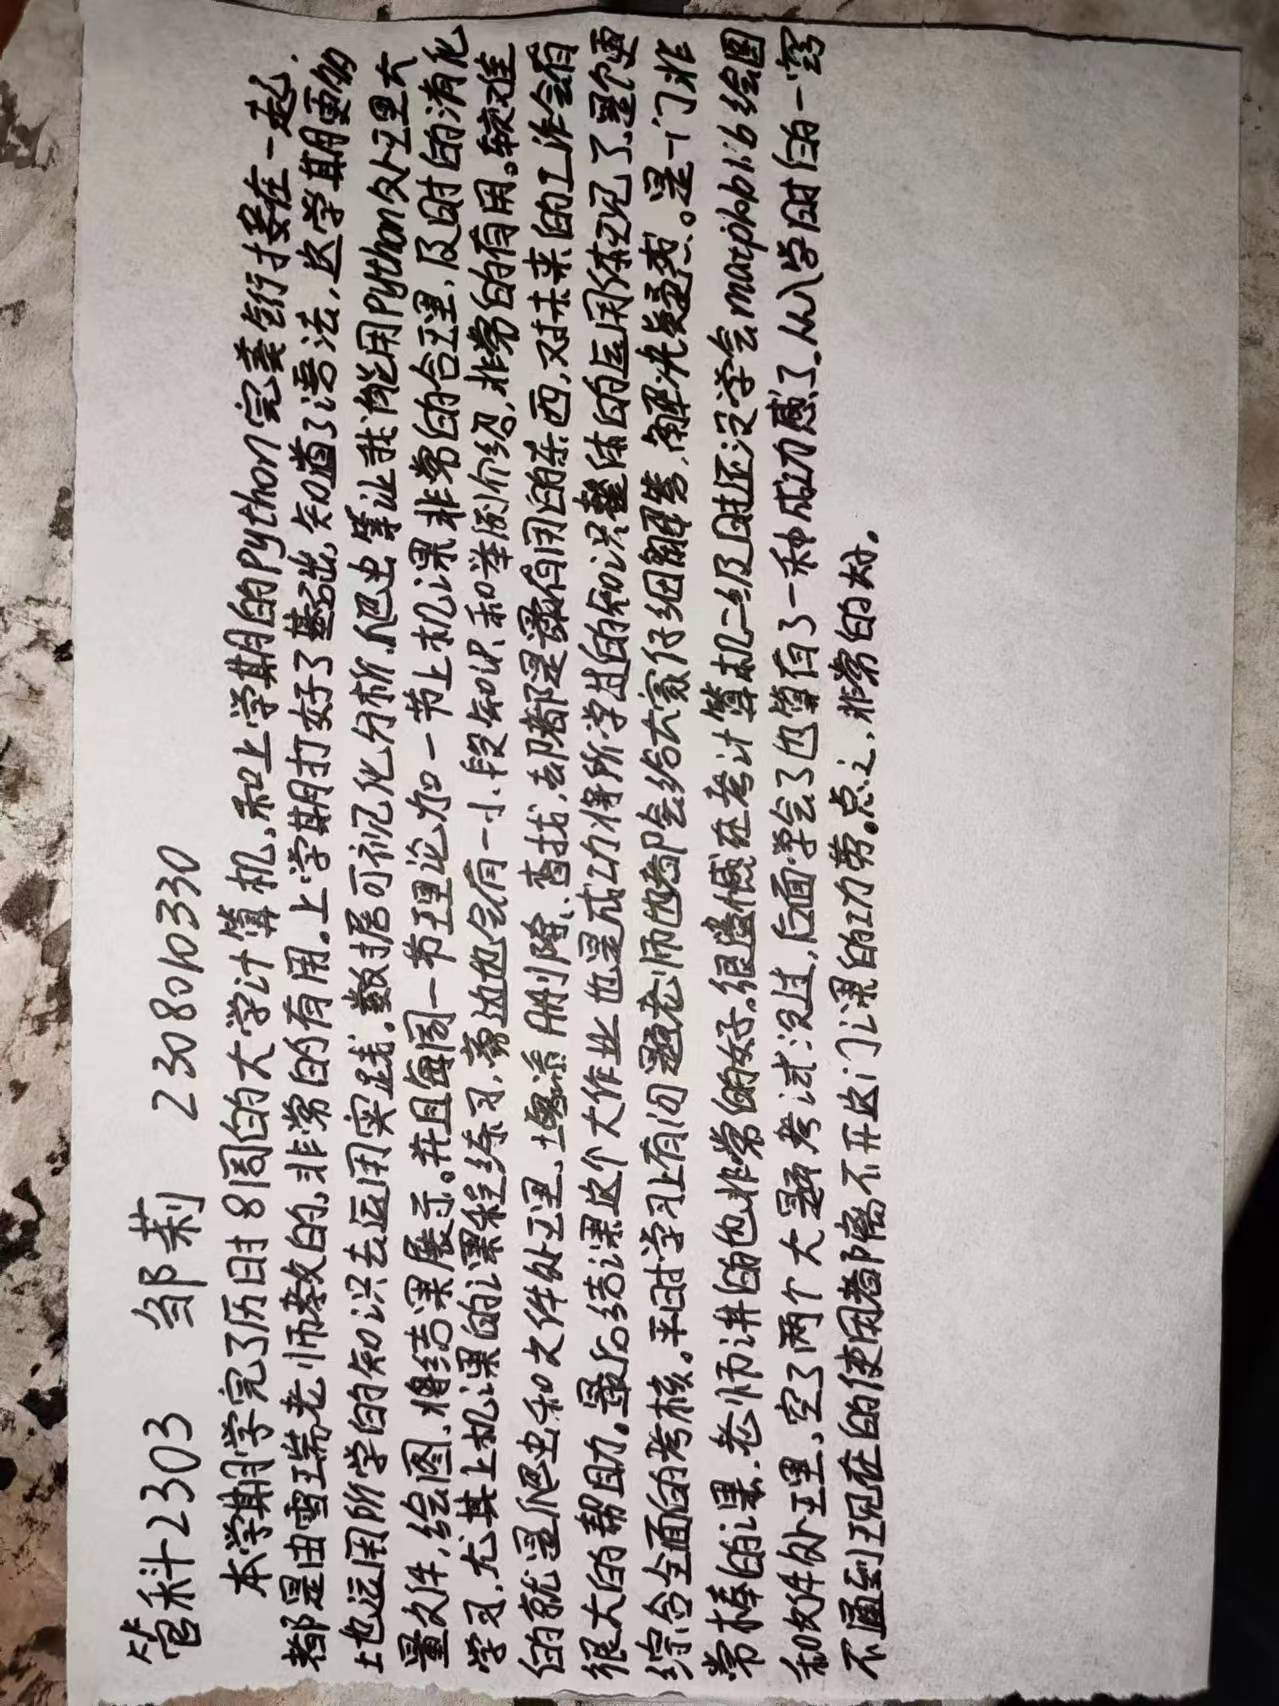 管科2303 邹莉 2308010330
本学期学完了历时8周的大学计算机,和上学期的Python完美衔接在一起.
都是由雪瑞老师教的,非常的有用.上学期打好了基础,知道了语法,这学期更多的
也运用所学的知识去运用实践.数据可视化分析,爬虫等让我们能用Python处理大
量文件,绘图,将结果展示.并且每周一节理论加一节上机课非常的合理,及时的消化
学习,尤其上机课的课程练习,旁边也会有一小段知识和举例介绍,非常的有用。较难
的就是爬虫和文件处理、填添删除、查找,却都是最有用的东西,对未来的工作会有
很大的帮助。最后结课这个大作业也是成功将所学过的知识整体的运用体现了,是个更
综合全面的考核。平时学习上有问题老师也都会给大家仔细解答,解决疑惑.。是一门非
常棒的课、老师讲的也非常的好.很遗憾在考计算机二级时还没学会matplotlib绘图
和文件处理、空了两个大题考试没过,后面学会了也算有了一种成功感了.从入学时的一窍
不通到现在的使用都离不开这门课的功劳。总之,非常的棒.